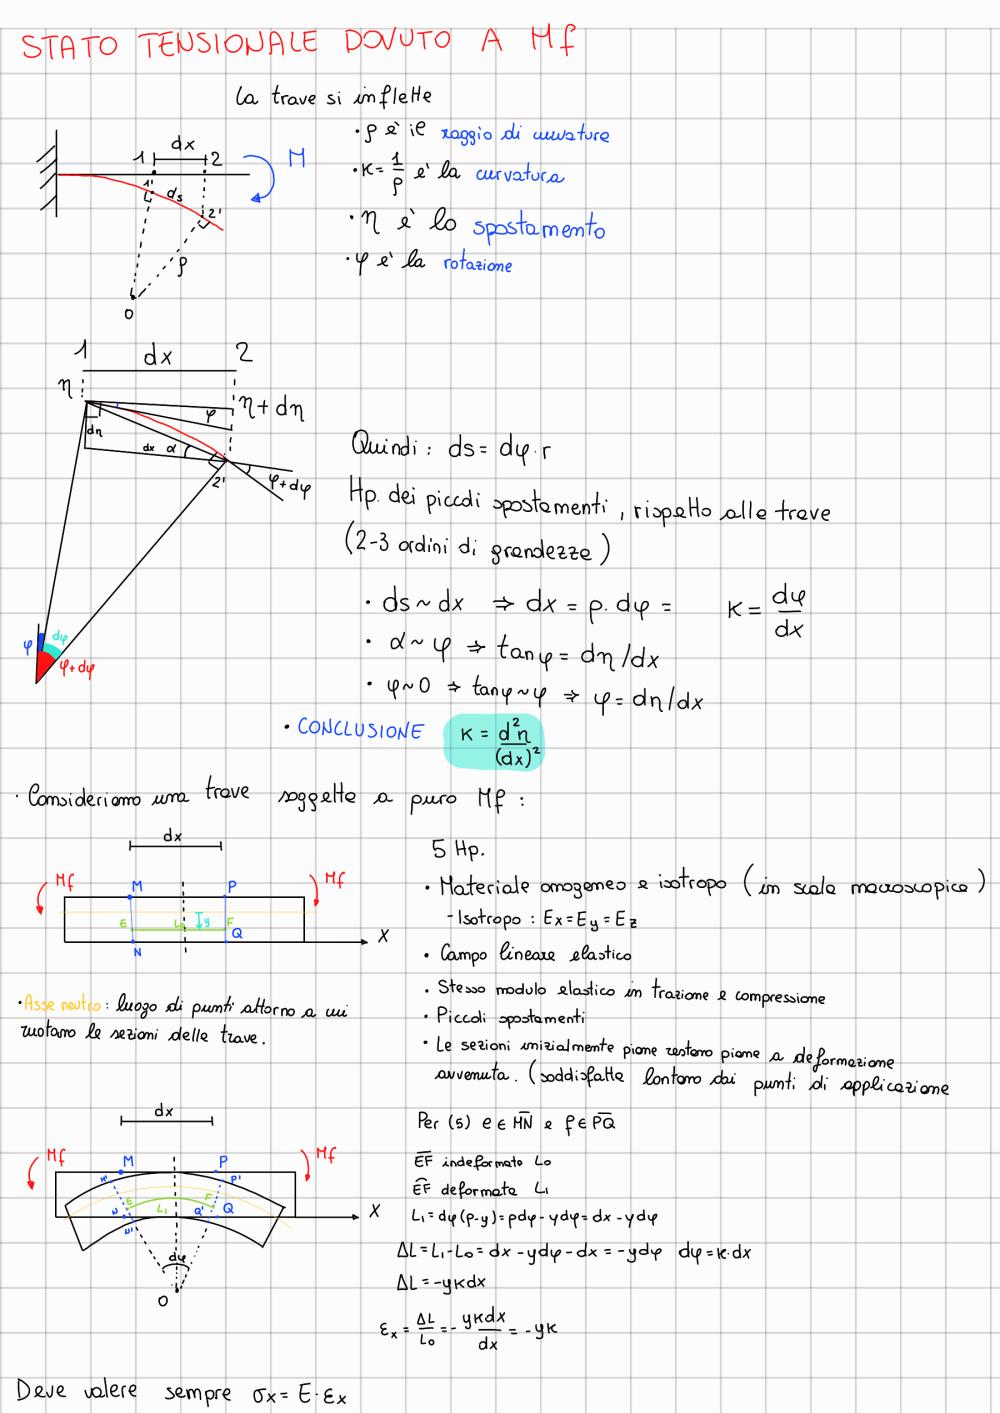 STATO TENSIONALE DOVUTO A Mf
la trave si inflette
• ρ è il raggio di curvature
• K = 1/ρ è la curvatura
• η è lo spostamento
• φ è la rotazione
1 dx 2
M
1' ds 2'
ρ
O
1 dx 2
η
η+dη
φ
dη
dx α
2'
φ+dφ
φ dφ
φ+dφ
Quindi : ds = dφ · r
Hp. dei piccoli spostamenti, rispetto alle trave
(2-3 ordini di grandezze)
• ds ~ dx ⇒ dx = ρ · dφ = K = dφ/dx
• α ~ φ ⇒ tanφ = dη/dx
• φ ~ 0 ⇒ tanφ ~ φ ⇒ φ = dη/dx
• CONCLUSIONE K = d²η/(dx)²
• Consideriamo una trave soggette a puro Mf :
dx
Mf M P Mf
E L₀ y F
N Q X
• Asse neutro : luogo di punti attorno a cui
ruotano le sezioni delle trave.
5 Hp.
• Materiale omogeneo e isotropo (in scala macroscopica)
- Isotropo : Ex = Ey = Ez
• Campo lineare elastico
• Stesso modulo elastico in trazione e compressione
• Piccoli spostamenti
• Le sezioni inizialmente piane restano piane a deformazione
avvenuta. (soddisfatte lontano dai punti di applicazione
dx
Mf M P Mf
M' P'
E L₁ F
N Q' Q X
N'
dφ
O
Per (5) e ∈ M̅N̅ e f ∈ P̅Q̅
E̅F̅ indeformato L₀
EF deformata L₁
L₁ = dφ(ρ-y) = ρdφ - ydφ = dx - ydφ
ΔL = L₁ - L₀ = dx - ydφ - dx = -ydφ dφ = κ·dx
ΔL = -yκdx
εx = ΔL/L₀ = - yκdx/dx = -yκ
Deve valere sempre σx = E · εx